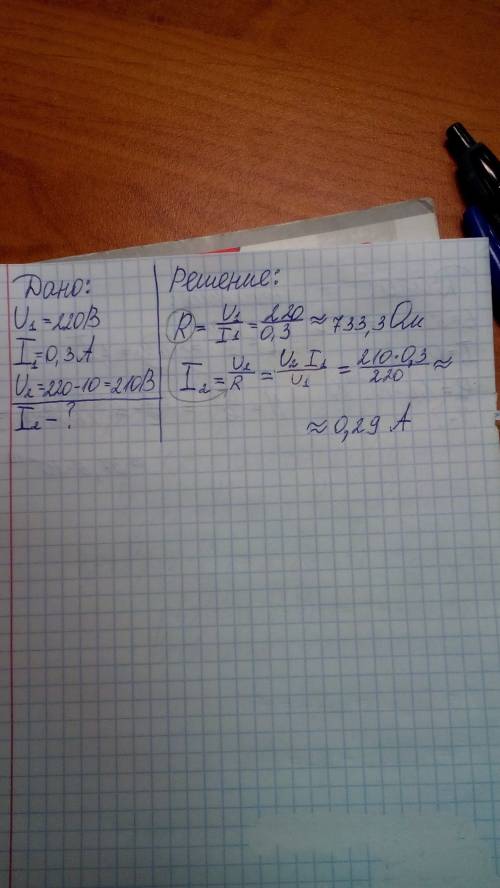 Дано:
U₁ = 220В
I₁ = 0,3А
U₂ = 220-10 = 210В
I₂ - ?
Решение:
R = U₁/I₁ = 220/0,3 ≈ 733,3 Ом
I₂ = U₂/R = U₂ I₁/U₁ = 210·0,3/220 ≈
≈ 0,29 А